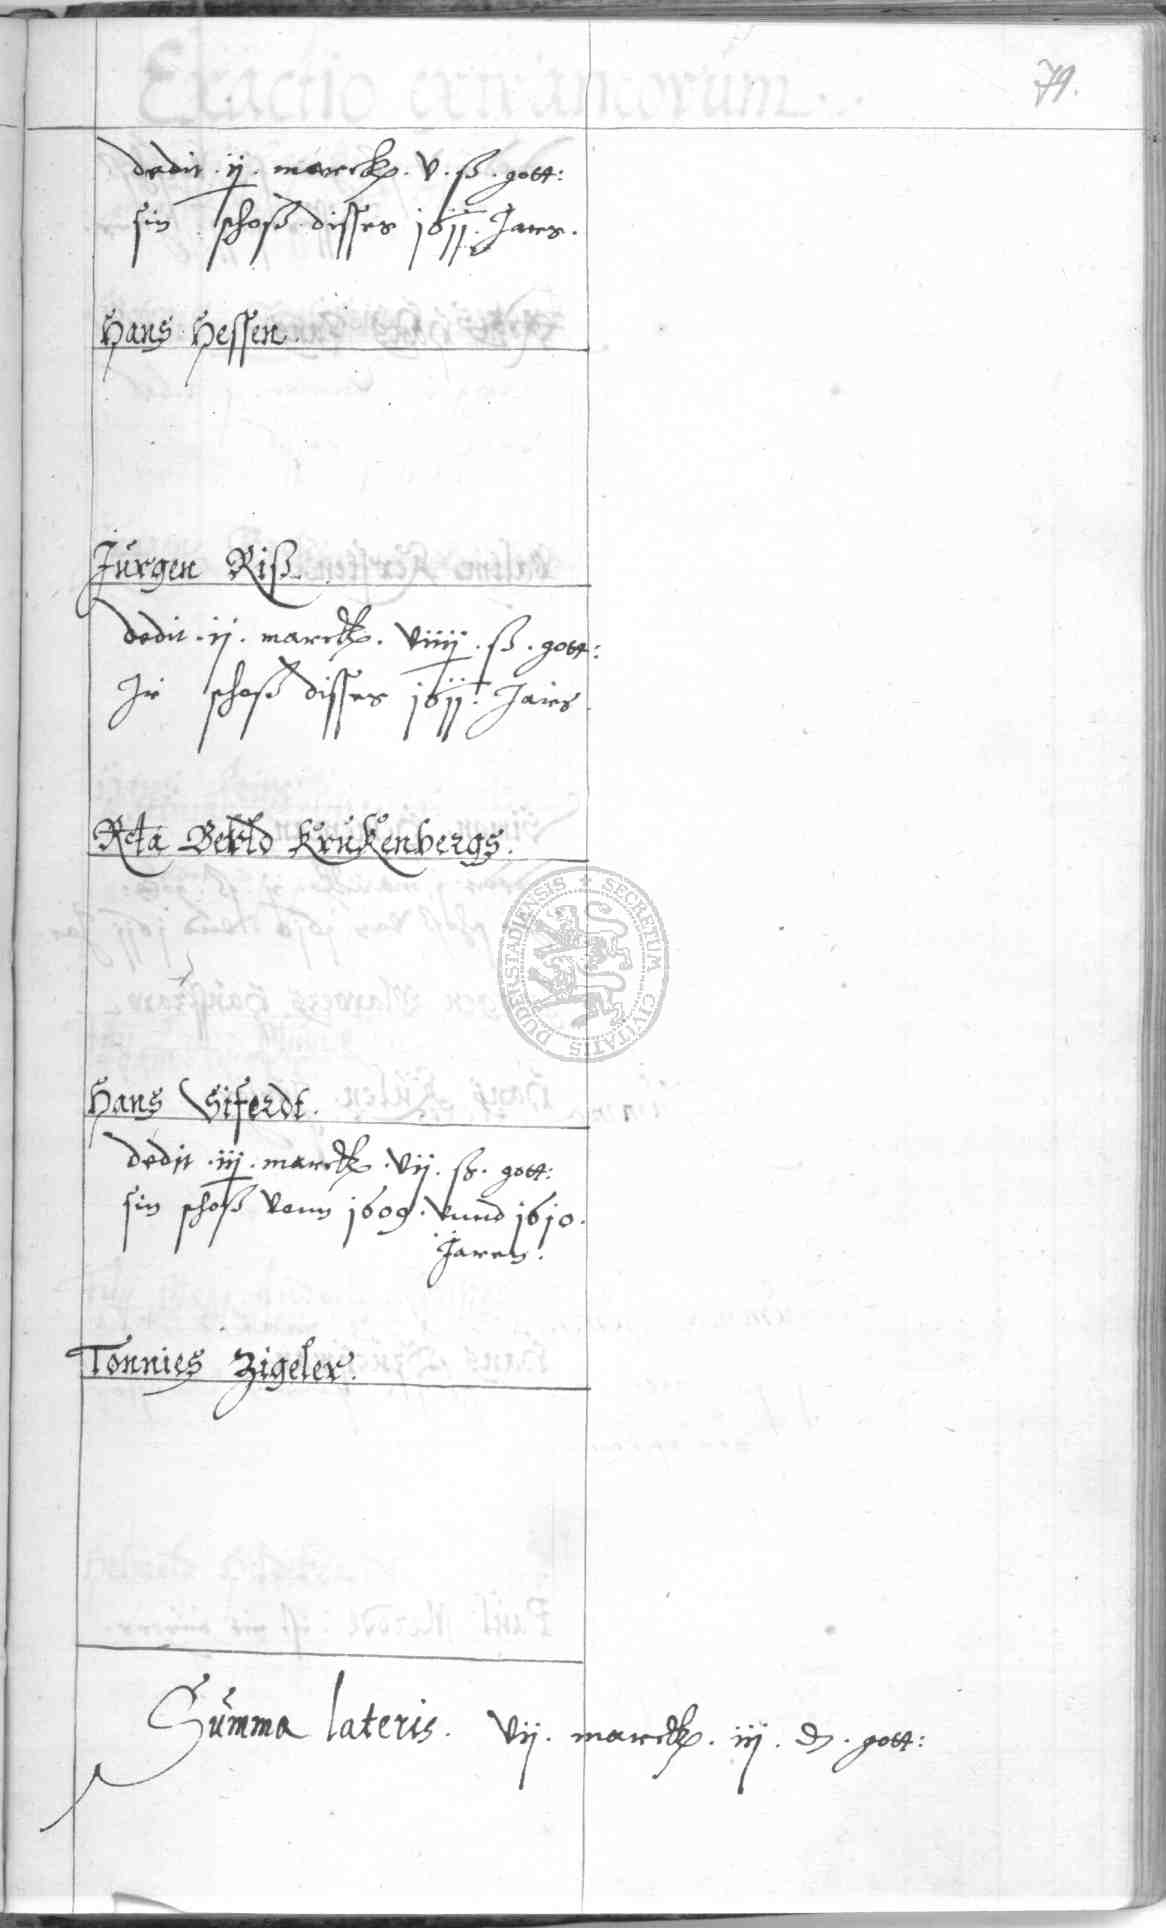 79.
dedit . ij . marck . v . ß . gott:
sin schoß disses 1611. Jares.
Hans Hessen.
Jürgen Riß
dedit . ij . marck . viiij . ß . gott:
Ir schoß disses 1611. Jaires
Reta Berld Krukenbergs.
Hans Siferdt.
dedit . iij . marck . vij . ß . gott:
sin schoß vonn 1609. vnnd 1610.
Jaren.
Tonnies Zigeler.
Summa lateris. vij . marck . iij . d . gott:
SECRETUM CIVITATIS DUDERSTADIENSIS